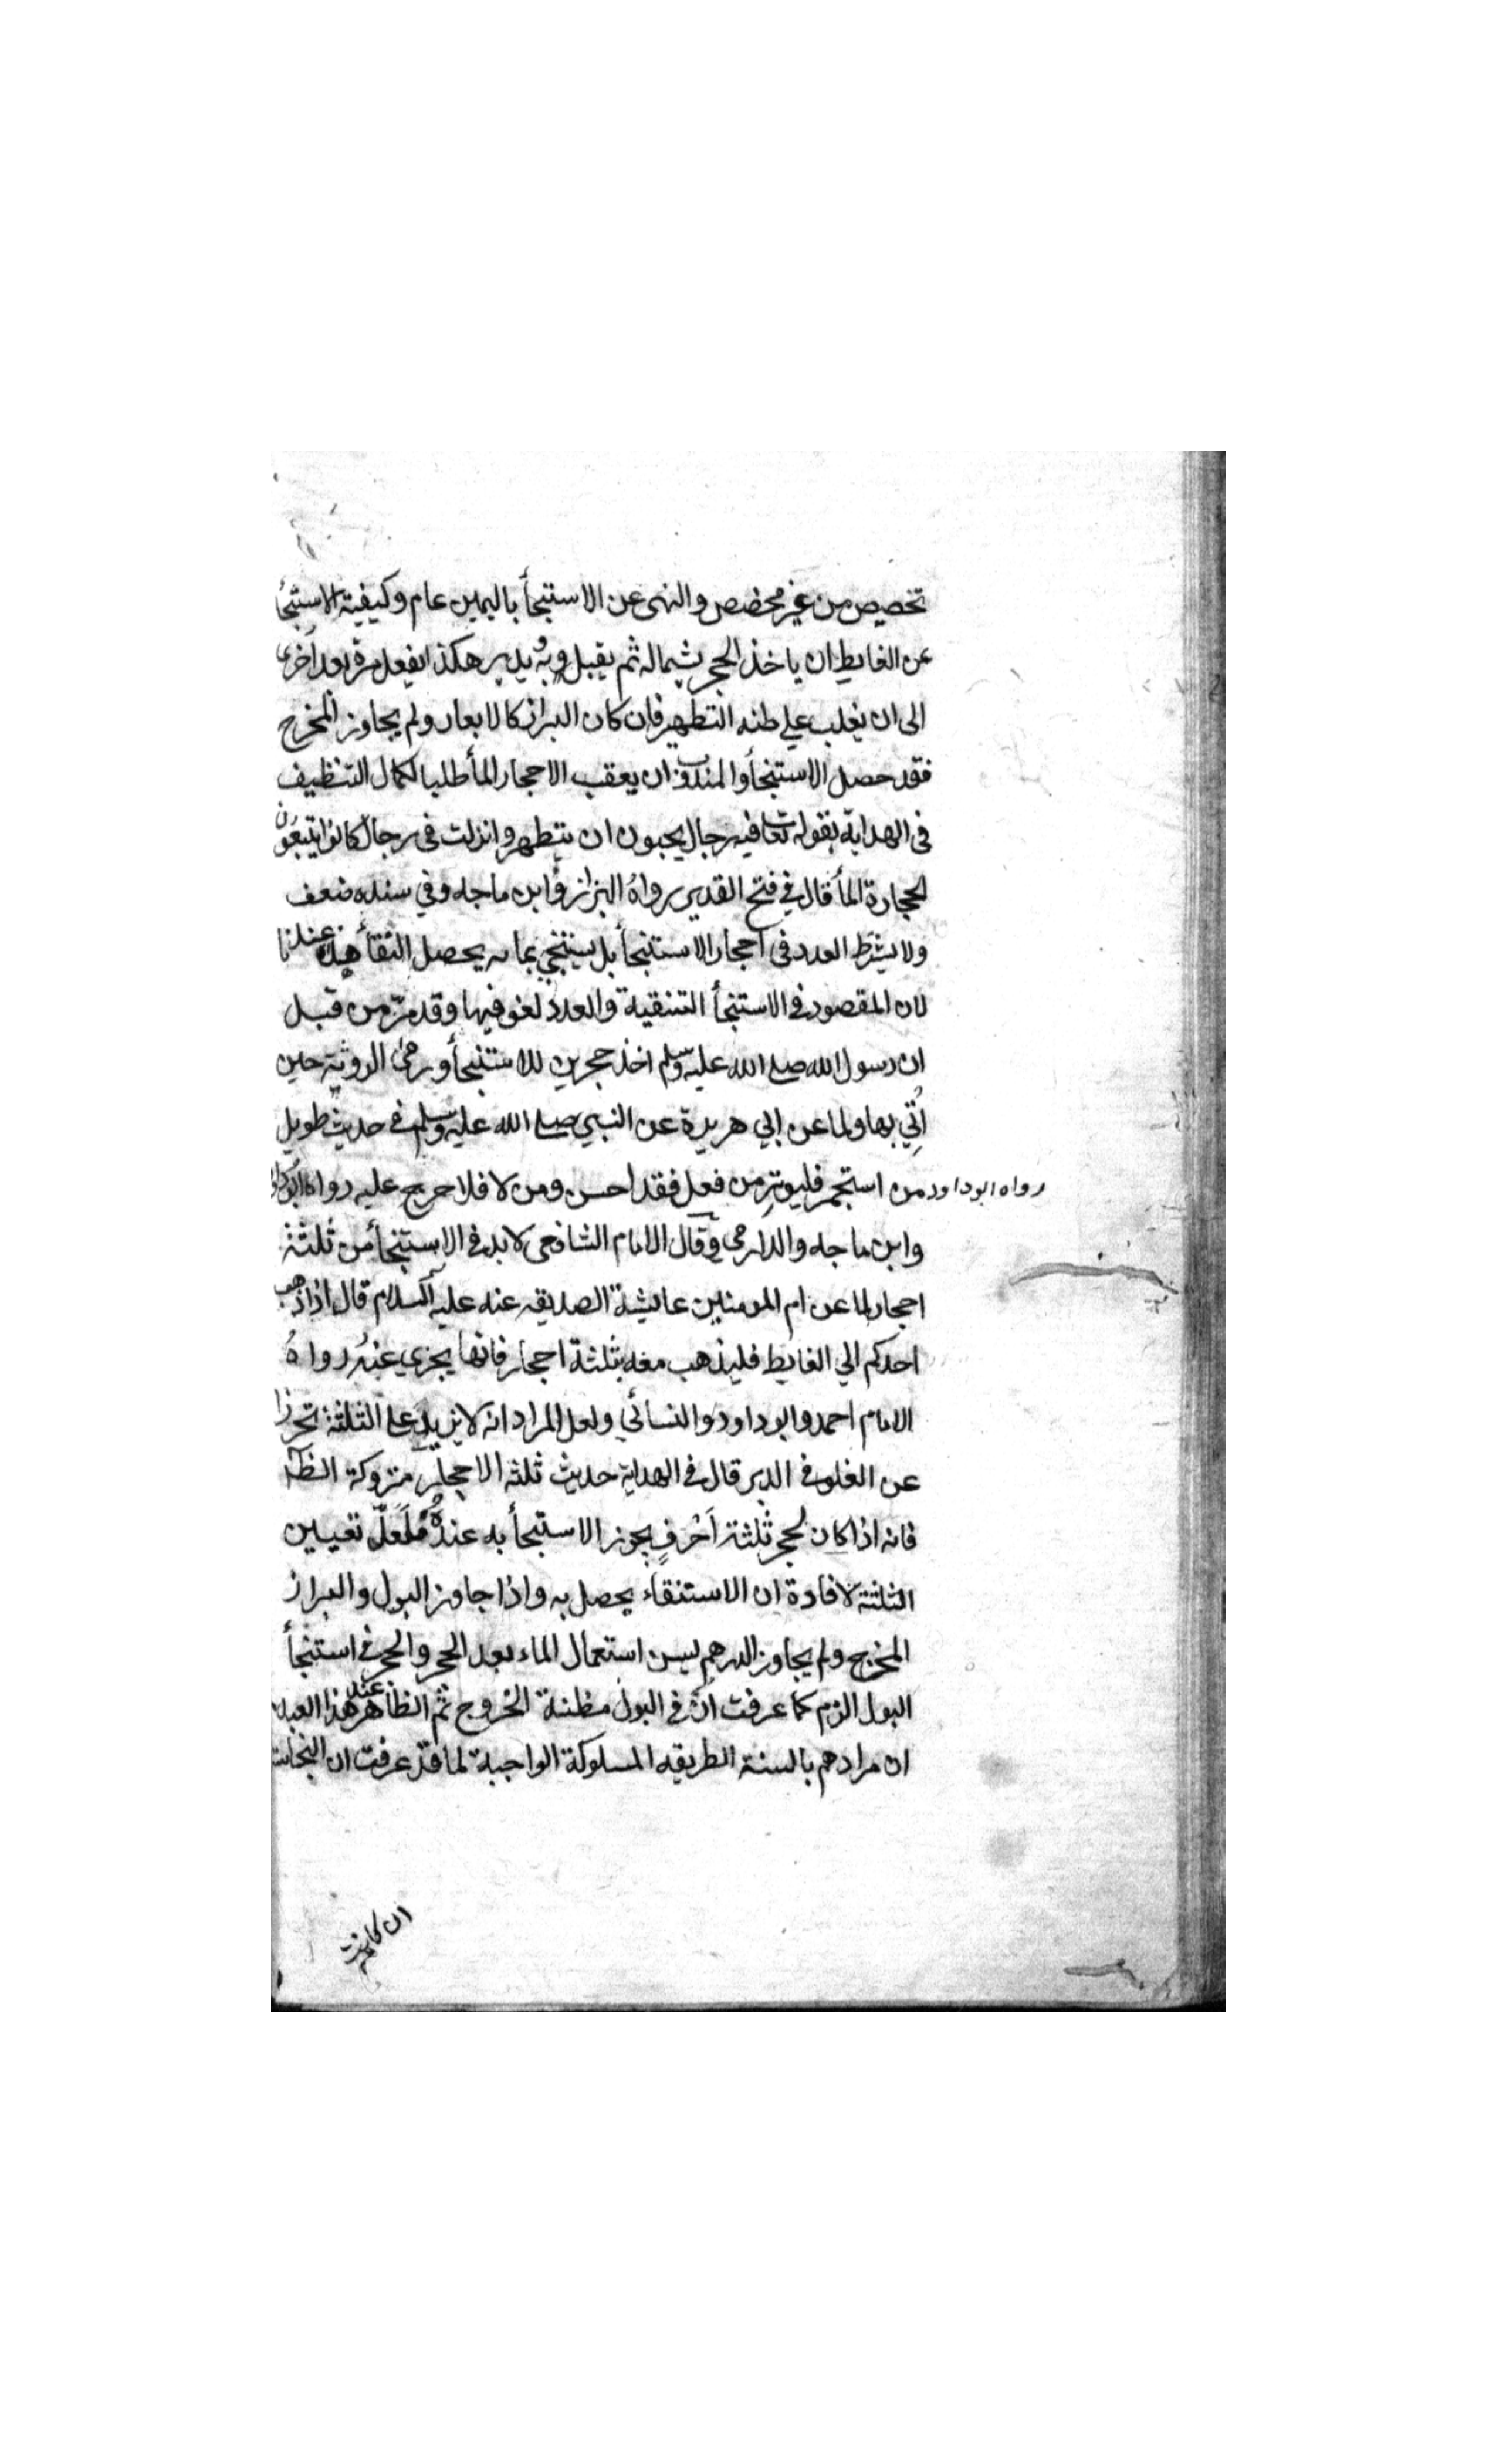 تخصيص من غير مخصص والنهى عن الاستنجأ باليمين عام وكيفية الاستنجأ
عن الغايط ان ياخذ الحجر بشماله ثم يقبل وبه يدبر هكذا يفعل مرة بعد اخرى
الى ان يغلب علي ظنه التطهير فان كان البراز كالابعار ولم يجاوز المخرج
فقد حصل الاستنجأ والمندوب ان يعقب الاحجار المأ طلبا لكمال التنظيف
فى الهداية بقوله تعا فيه رجال يحبون ان يتطهروا نزلت فى رجال كانوا يتبعون
الحجارة المأ قال في فتح القدير رواهُ البزاز وابن ماجه وفي سنده ضعف
ولا يشترط العدد فى احجار الاستنجأ بل يستنجي بما به يحصل النقأ عندنا
لان المقصود فى الاستنجأ التنقية والعدد لغو فيها وقد مرّ من قبل
ان رسول الله صلى الله عليه وسلم اخذ حجرين للاستنجأ ورمى الروثة حين
اُتي بها ولما عن ابي هريرة عن النبي صلى الله عليه وسلم في حديث طويل
رواه ابوداود من استجمر فليوتر من فعل فقد احسن ومن لا فلا حرج عليه رواه ابوداود
وابن ماجه والدارمى وقال الامام الشافعى لا بد فى الاستنجأ من ثلثة
احجار لما عن ام المومنين عايشة الصديقه عنه عليه السلام قال اذا ذهب
احدكم الي الغايط فليذهب معه بثلثة احجار فانها يجزي عنهُ رواهُ
الامام احمد وابو داود والنسائي ولعل المراد انه لا يزيد على الثلثة تحرزا
عن الغلو في الدبر قال فى الهداية حديث ثلثه الاحجار متروكة الظا
فانه اذا كان لحجر ثلثة اَحْرفٍ يجوز الاستنجأ به عندهُ فلَعَلّ تعيين
الثلثة لافادة ان الاستنقاء يحصل به واذا جاوز البول والبراز
المخرج ولم يجاوز الدرهم يسن استعمال الماء بعد الحجر والحجر فى استنجأ
البول الزم كما عرفت انّ فى البول مظنة الخروج ثم الظاهر عند هذا العبد
ان مرادهم بالسنة الطريقه المسلوكة الواجبة لما قد عرفت ان النجاست
ان كانت